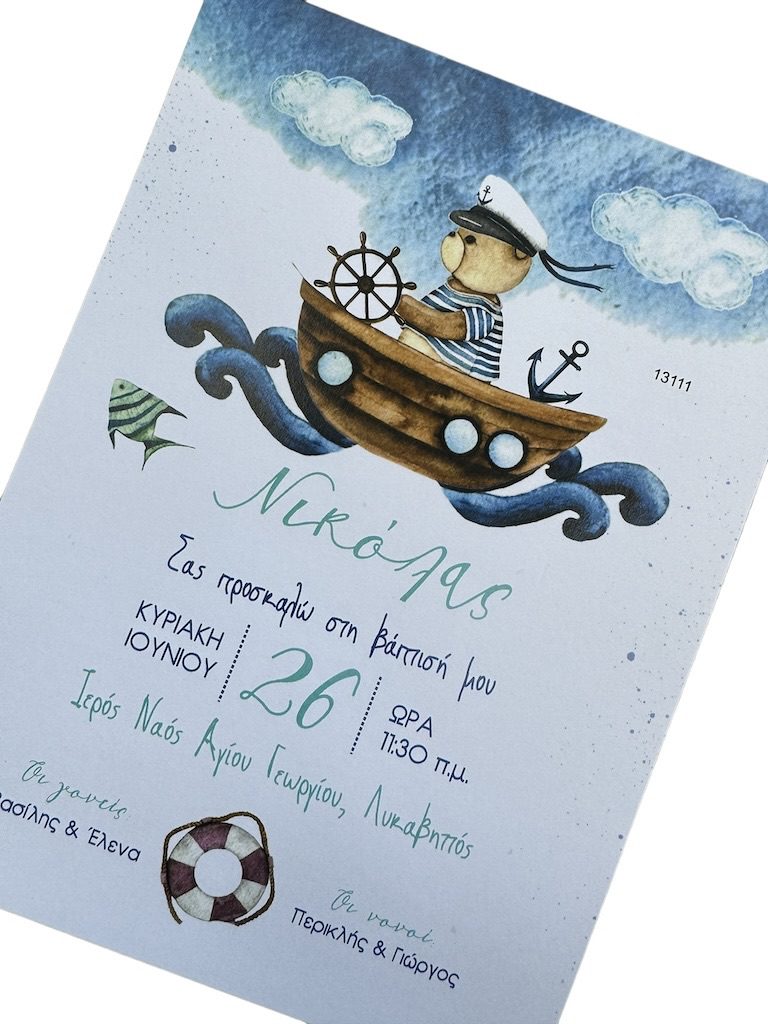 13111
Νικόλας
Σας προσκαλώ στη βάπτισή μου
ΚΥΡΙΑΚΗ
ΙΟΥΝΙΟΥ
26
ΩΡΑ
11:30 π.μ.
Ιερός Ναός Αγίου Γεωργίου, Λυκαβηττός
Οι γονείς
ασίλης & Έλενα
Οι νονοί
Περικλής & Γιώργος